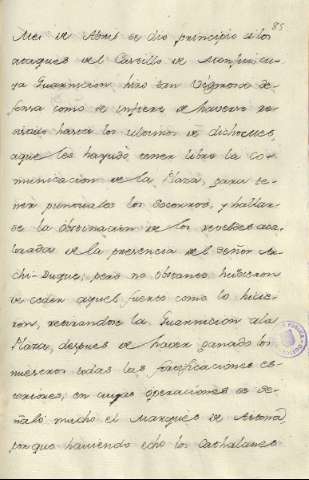 85
Mes de Abril se dio principio a los
ataques del Castillo de Monjuic cu-
ya Guarnicion hizo tan vigorosa de-
fensa como se infiere de haverse re-
sistido hasta los ultimos de dicho mes,
a que les hayudó tener libre la Co-
municacion de la Plaza, para te-
ner puntuales los Socorros, y hallar-
se la obstinacion de los reveldes aca-
lorada de la presencia del Señor Ar-
chi-Duque; pero no obstante huvieron
de ceder aquel fuerte como lo hicie-
ron, retirandose la Guarnicion a la
Plaza, despues de haver ganado los
nuestros todas las fortificaciones es-
teriores; en cuyas operaciones se se-
ñaló mucho el Marques de
porque haviendo echo los Cathalanes